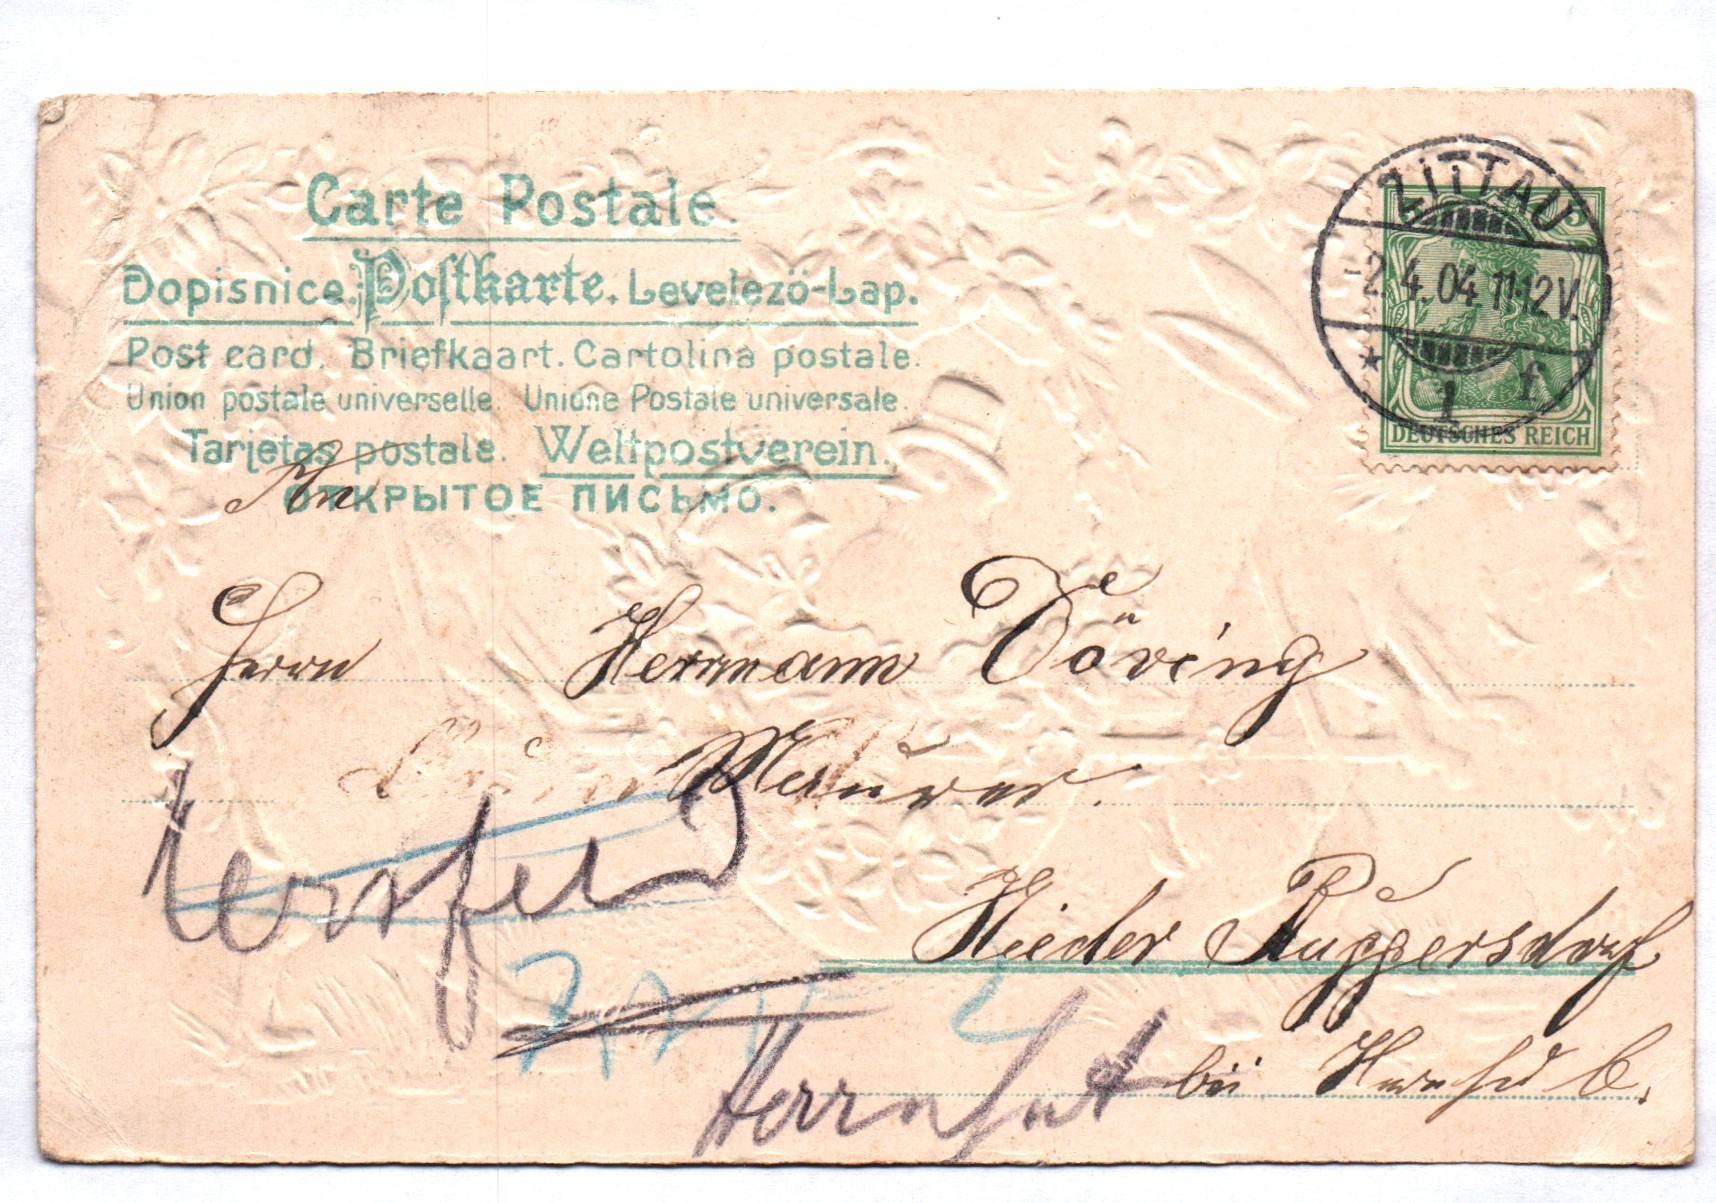 Carte Postale.
Dopisnice. Postkarte. Levelezö-Lap.
Post card. Briefkaart. Cartolina postale.
Union postale universelle. Unione Postale universale.
Tarjetas postale. Weltpostverein.
ОТКРЫТОЕ ПИСЬМО.
ZITTAU
-2.4.04 11-12V.
* 1 f.
5
DEUTSCHES REICH
An
Herrn Herrmann Döring
Maurer.
Nieder Ruppersdorf
bei
Herrnhut